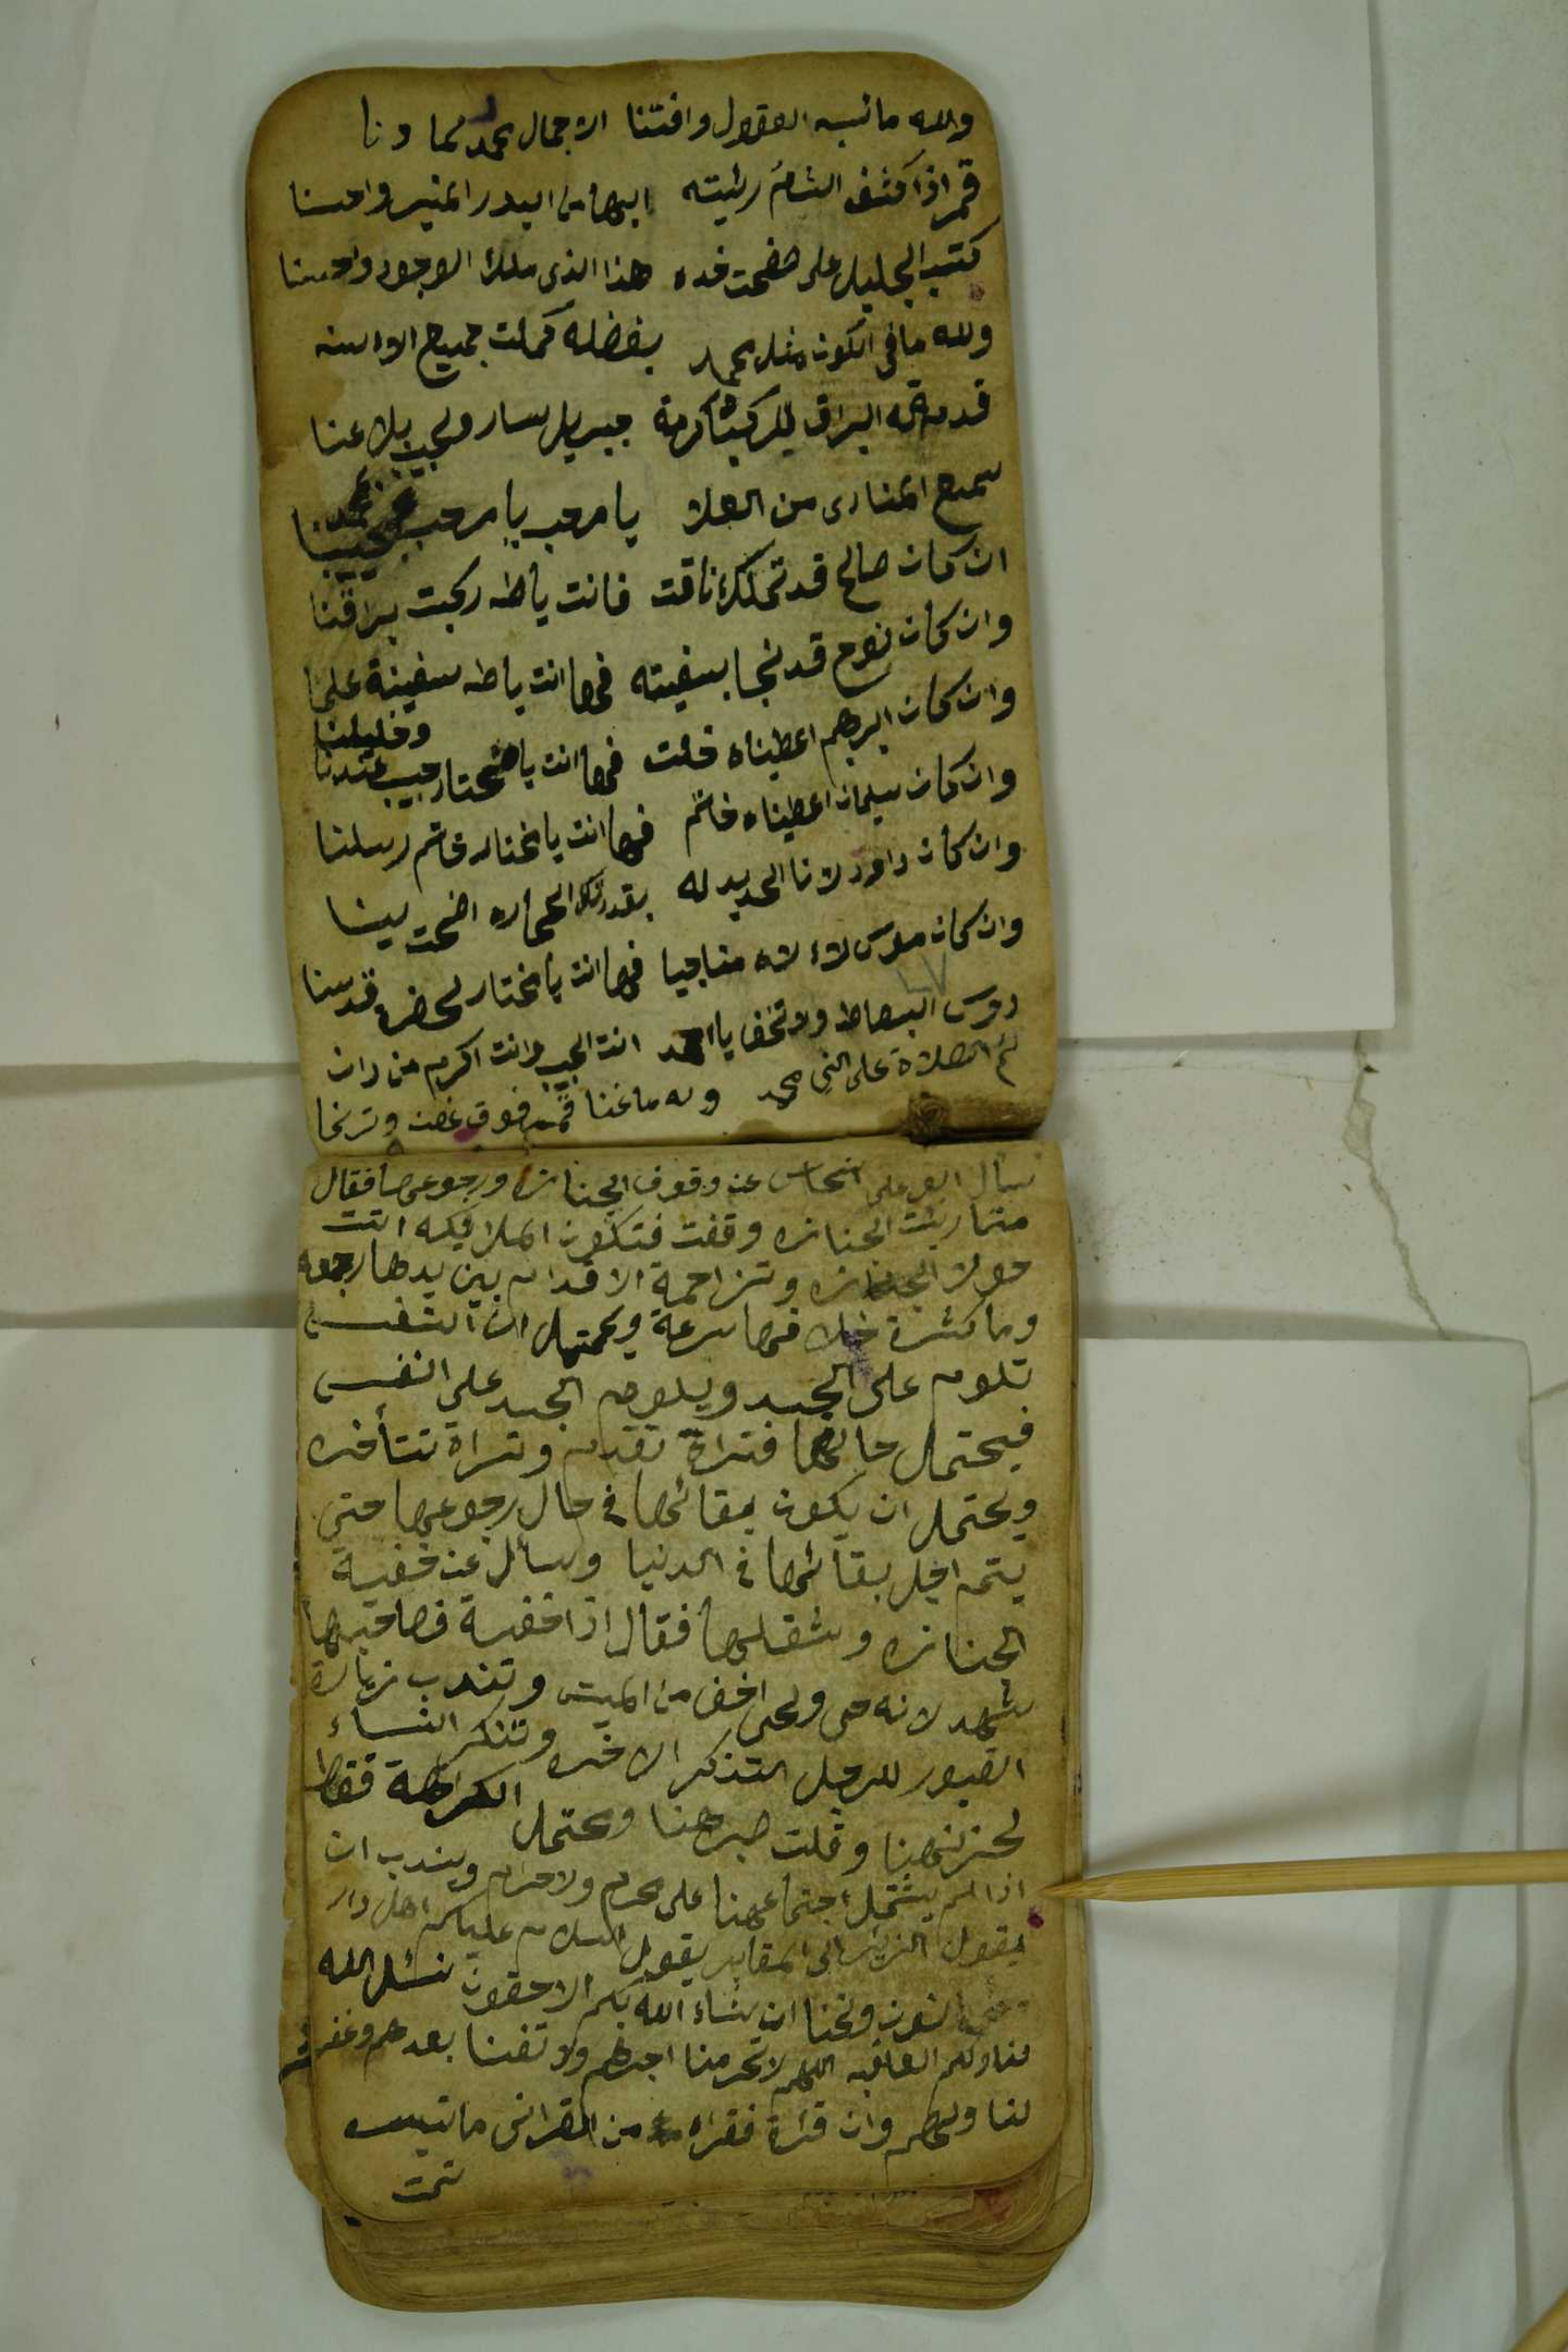 والله ما نسبه العقول وافتنا الا جمال محمد لما دنا
قمر اذا كشف اللثام رئيته ابها من البدر المنير واحسنا
كتب الجليل على صفحت خده هذا الذى ملك الوجود واحسنا
ولله ما فى الكون مثل محمد بفضله كملت جميع
قدمة له البراق للركبه كرمة جبريل سار ولحبيب بلا عنا
سمع المنادى من العلا يا مرحب يا مرحب محمد حبيبنا
ان كان صالح قد تملك ناقت فانت ياطه ركبت براقنا
وان كان نوح قد نجا بسفيته فها انت ياطه سفينة علمنا
وان كان ابرهيم اعطيناه خلت فها انت يا مختار حبيب عندنا وخليلنا
وان كان سيلمان اعطيناه خاتم فها انت يا مختار خاتم رسلنا
وان كان داود لانا الحديد له بقدرتك الحجاره اضحت لينا
وان كان موسى مناجيا فها انت يا مختار لحضرة قدسنا
دوس البساط ولا تخف يا احمد انت الحبيب وانت اكرم من دان
ثم الصلاة على النبى محمد وله ما غنا قمر فوق غصن وترنما
سأل ابو على النحاس عن وقوف الجنازه ورجوعها فقال
متما رئيت الجنازه وقفت فتكون الملائيكه اتت
حولا الجنازه وتزاحمة الاقدام بين يدها رجعه
وما كثرة خلا فها سرعة ويحمتل ان النفس
تلوم على الجسد ويلوم الجسد على النفس
فيحتمل حالها فتراة تقدم وتراة تتأخره
ويحتمل ان يكون بقائها فى حال رجوعها حتى
يتم اجل بقائها فى الدنيا وسأل عن خفية
الجنازه وثقلها فقال اذا خفية فصاحبها
شهد لانه حى ولحى اخف من الميت وتندب زيارة
القبور للرجل التذكر الاخره وتنكر النساء
لحزنهنا وقلت صبرهنا ويحتمل الكراهة فقط
اذا لم يشتمل اجتماعهنا على محرم ولا حرام ويندب ان
يقول الزائر الى المقابر يقول السلام عليكم اهل دار
ونحنا ان شاء الله بكم الاحقون نسئل الله
لنا ولكم العافيه اللهم لا تحرمنا اجرهم ولا تفتنا بعدهم وغفر
لنا ولهم وان قرئة فقراه من القرائن ما تيسر
تمت